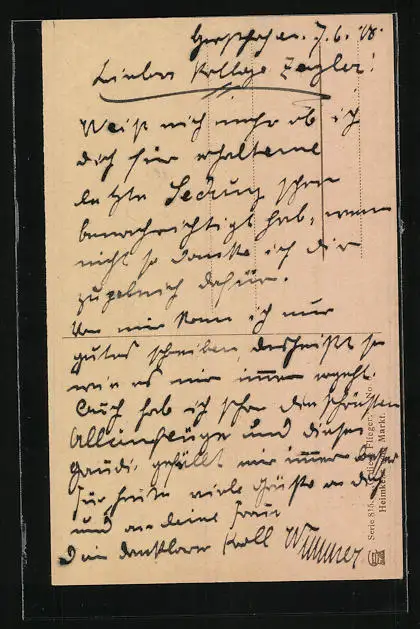 7.6.18.
Lieber Kollege Zegler!
Weiß nich mehr ob ich
dich für erhaltene
letzte Sedung schon
benachrichtigt hab, wenn
nicht so danke ich dir
dafür.
Von mir kann ich nur
gutes schreiben, das heißt so
wie es mir immer ergeht.
Auch hab ich schon den schönsten
Alleinflüge und dieser
Gaudi gefällt mir immer besser
Für heute viele Grüße an dich
und an deine Frau
Dein dankbarer Koll Wimmer
Serie 815. Flieger
Heimkehr Markt.